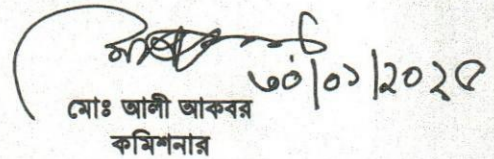 ৩০/০১/২০২৫
মোঃ আলী আকবর
কমিশনার